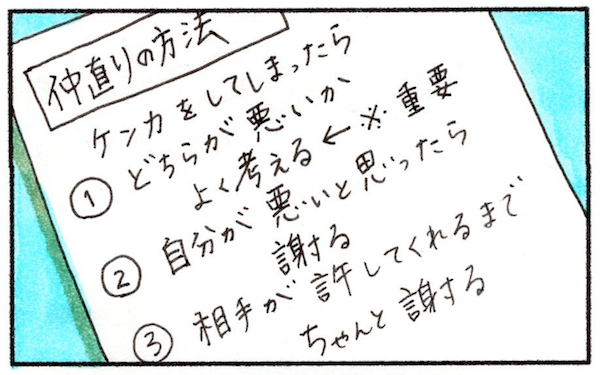 仲直りの方法
ケンカをしてしまったら
① どちらが悪いか
よく考える ← ※ 重要
② 自分が悪いと思ったら
謝る
③ 相手が許してくれるまで
ちゃんと謝する